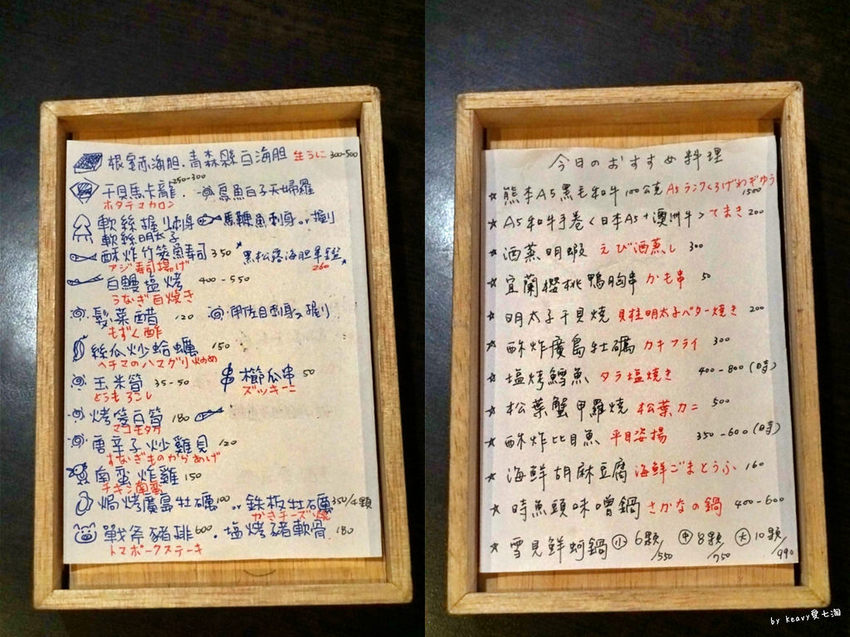 根室赤海胆.青森縣白海胆 生うに 300-500
干貝馬卡龍 250-300
ホタテマカロン
白子天婦羅
軟絲握/刺身
軟絲明太子
馬鞭魚刺身or握り
酥炸竹筴魚壽司 350
アジ寿司揚げ
黑松露海胆 260
白鰻塩烤 400-550
うなぎ白焼き
髮菜醋 120
もずく酢
刺身 握り
絲瓜炒蛤蠣 150
ヘチマのハマグリ炒め
玉米筍 35-50
とうもろこし
串 櫛瓜串 50
ズッキーニ
烤筊白筍 180
マコモタケ
唐辛子炒雞 120
南蛮炸雞 150
チキン南蛮
焗烤廣島牡蠣 100 or 鉄板牡蠣 350/4顆
かきチーズ焼
戰斧豬排 600.塩烤豬軟骨 180
トマポークステーキ
今日のおすすめ料理
★ 熊本A5黒毛和牛 100公克 A5ランクくろげわぎゅう 1500
★ A5和牛手卷<日本A5+澳洲牛> てまき 200
★ 酒蒸明蝦 えび酒蒸し 300
★ 宜蘭櫻桃鴨胸串 かも串 50
★ 明太子干貝燒 貝柱明太子バター焼き 200
★ 酥炸廣島牡蠣 カキフライ 300
★ 塩烤鱈魚 タラ塩焼き 400-800(时)
★ 松葉蟹甲羅燒 松葉カニ 500
★ 酥炸比目魚 平目姿揚 350-600(时)
★ 海鮮胡麻豆腐 海鮮ごまとうふ 160
★ 時魚頭味噌鍋 さかなの鍋 400-600
★ 雪見鮮蚵鍋 小 6顆/550 中 8顆/750 大 10顆/990
by keavy愛七淘